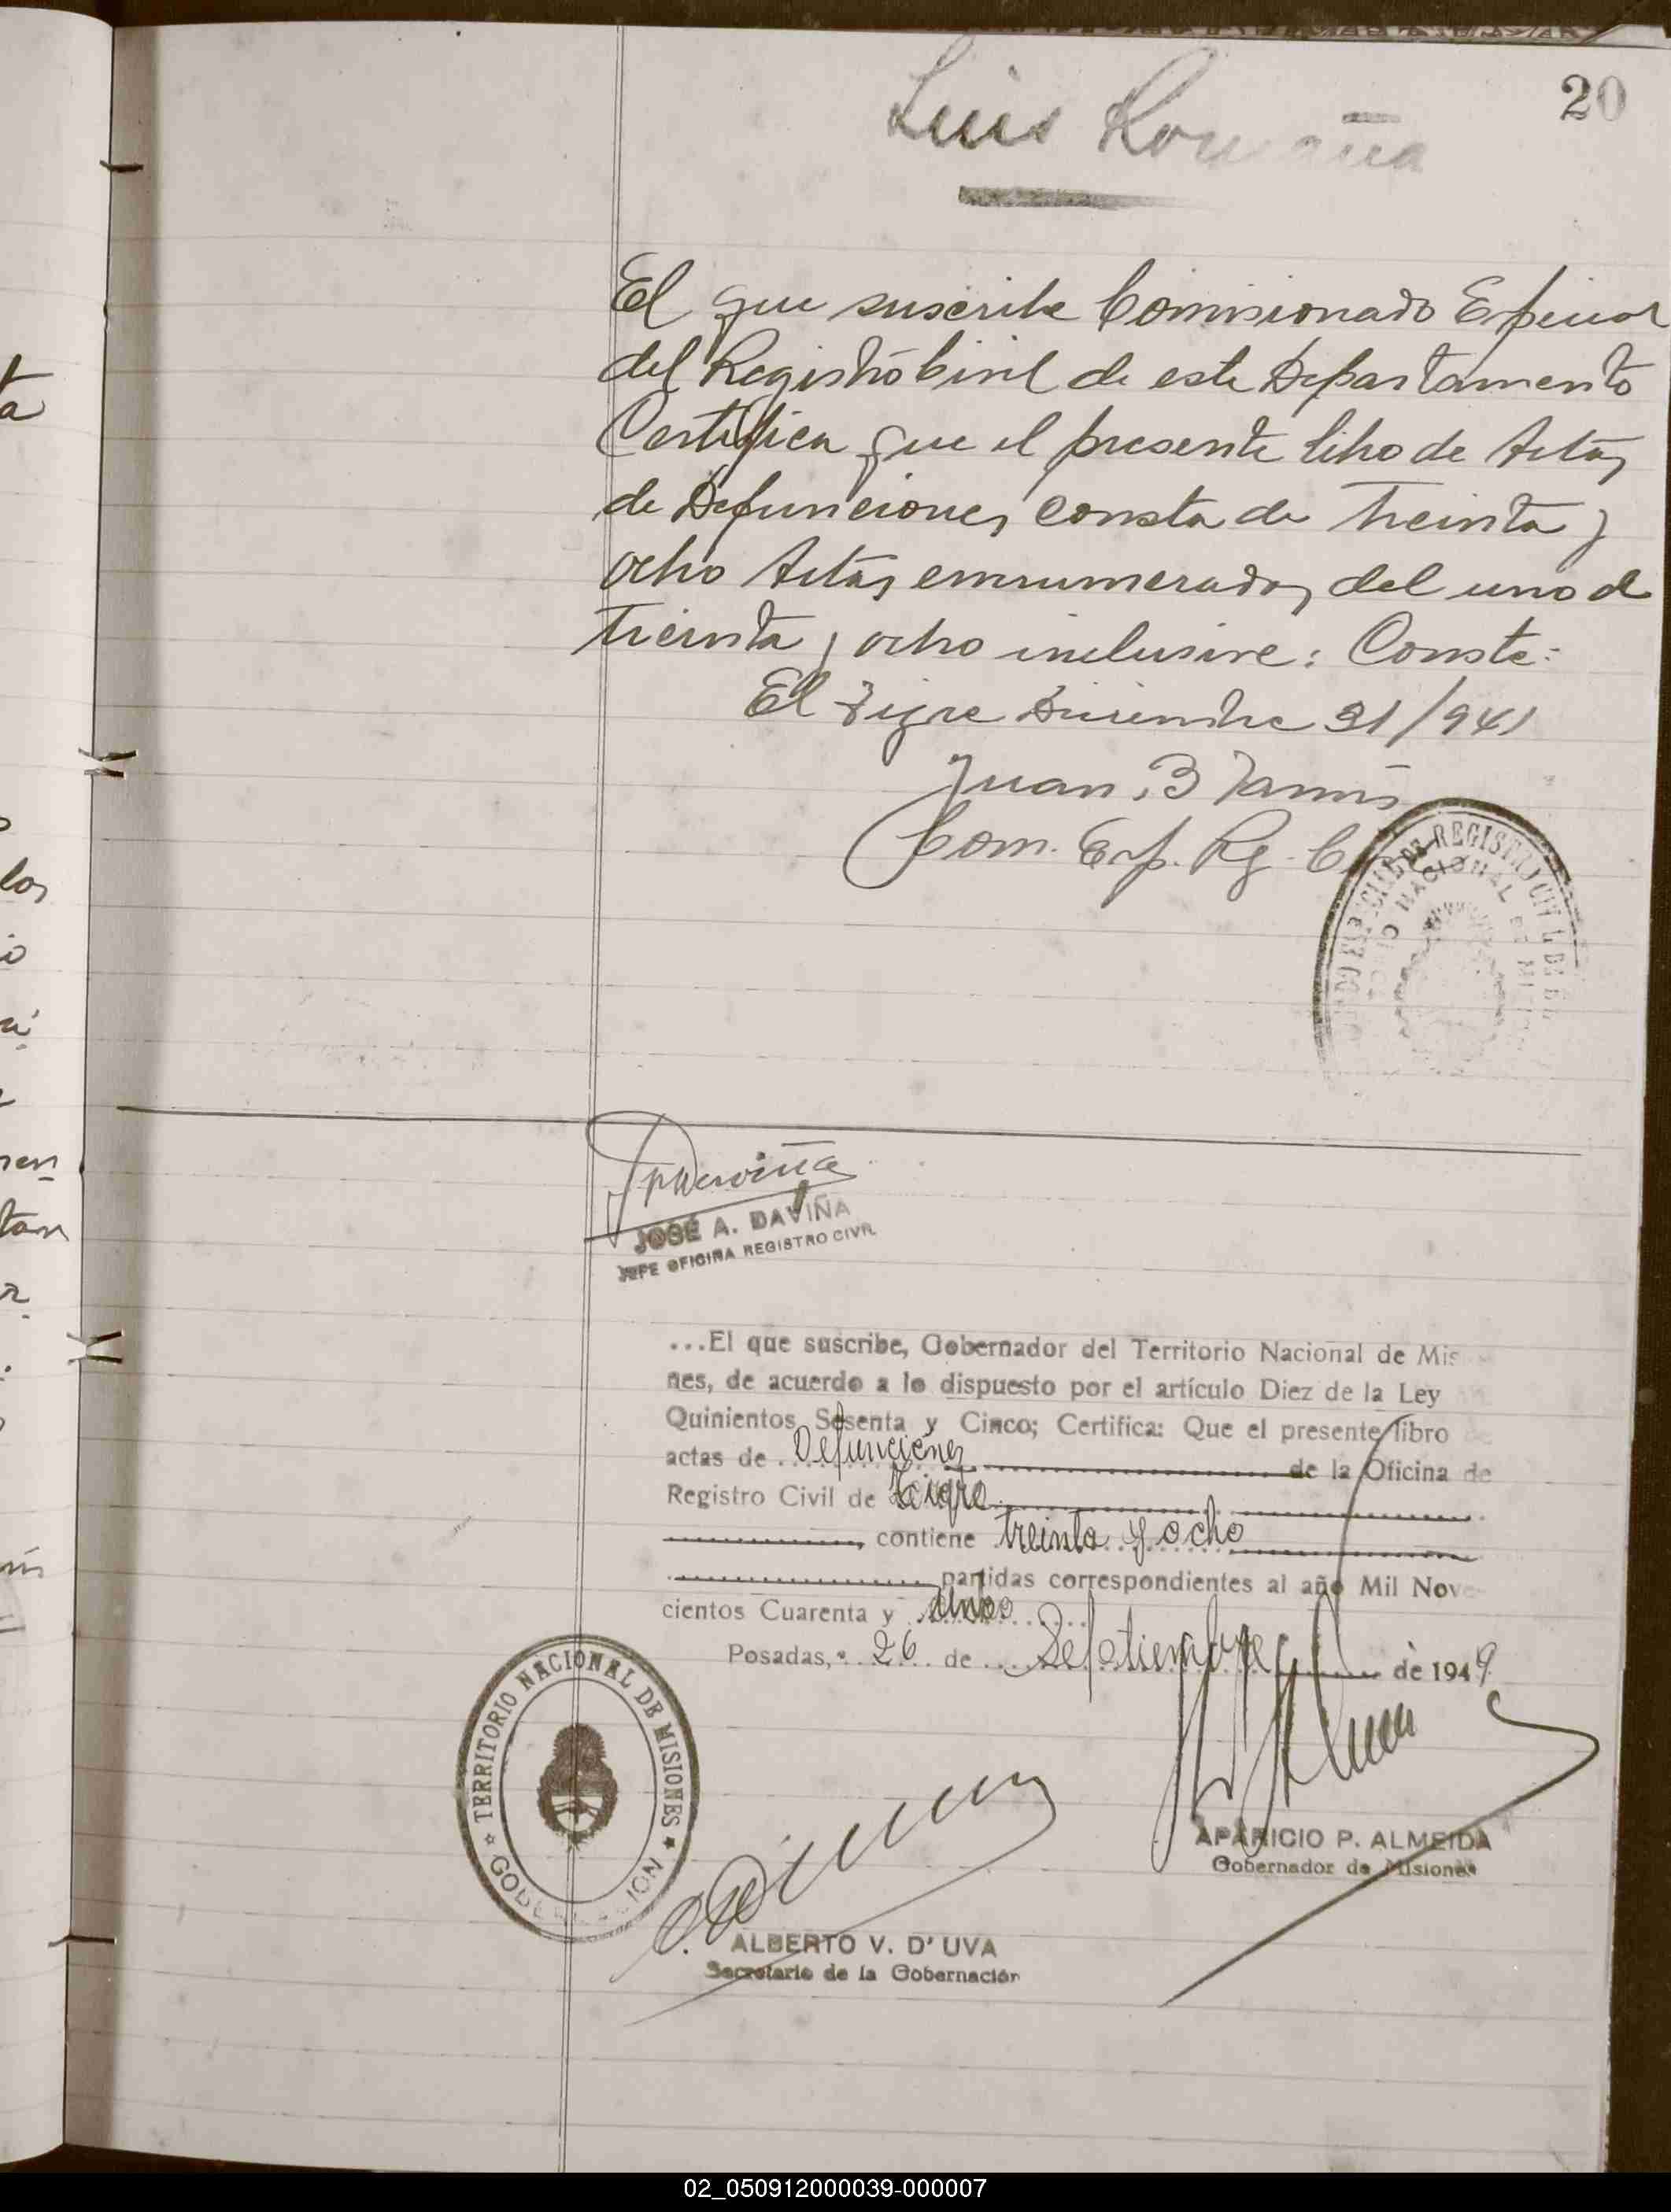 20
Luis Romaña
El que suscribe Comisionado Especial
del Registro Civil de este Departamento
Certifica que el presente libro de Actas
de Defunciones consta de treinta y
ocho Actas ennumeradas del uno al
treinta y ocho inclusive: Conste:
El Tigre Diciembre 31/941
Juan B
Com. Esp. Rg. C.
REGISTRO CIVIL
NACIONAL DE
JOSÉ A. DAVIÑA
JEFE OFICINA REGISTRO CIVIL
...El que suscribe, Gobernador del Territorio Nacional de Mis
nes, de acuerdo a lo dispuesto por el artículo Diez de la Ley
Quinientos Sesenta y Cinco; Certifica: Que el presente libro de
actas de Defunciones de la Oficina de
Registro Civil de Tigre
contiene treinta y ocho
partidas correspondientes al año Mil Nove-
cientos Cuarenta y uno
Posadas, 26 de Setiembre de 1949
TERRITORIO NACIONAL DE MISIONES
GOBERNACION
APARICIO P. ALMEIDA
Gobernador de Misiones
ALBERTO V. D'UVA
Secretario de la Gobernación
02_050912000039-000007